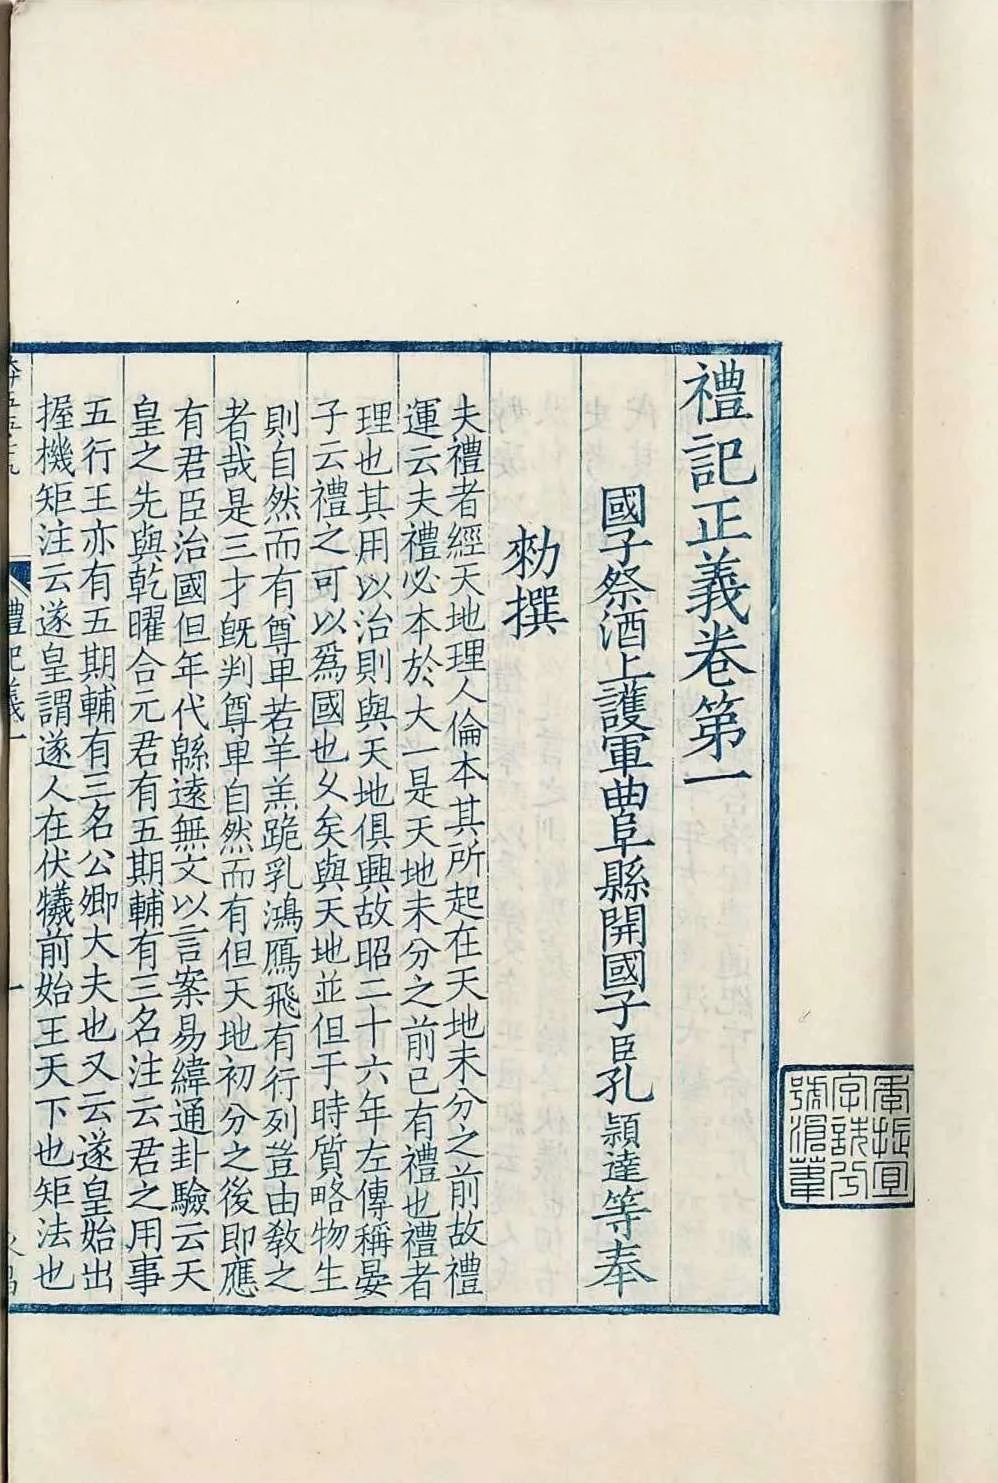 禮記正義卷第一
國子祭酒上護軍曲阜縣開國子臣孔穎達等奉
勑撰
夫禮者經天地理人倫本其所起在天地未分之前故禮
運云夫禮必本於大一是天地未分之前已有禮也禮者
理也其用以治則與天地俱興故昭二十六年左傳稱晏
子云禮之可以爲國也久矣與天地並但于時質略物生
則自然而有尊卑若羊羔跪乳鴻鴈飛有行列豈由敎之
者哉是三才旣判尊卑自然而有但天地初分之後即應
有君臣治國但年代緜遠無文以言案易緯通卦驗云天
皇之先與乾曜合元君有五期輔有三名注云君之用事
五行王亦有五期輔有三名公卿大夫也又云遂皇始出
握機矩注云遂皇謂遂人在伏犧前始王天下也矩法也
禮記義一
一